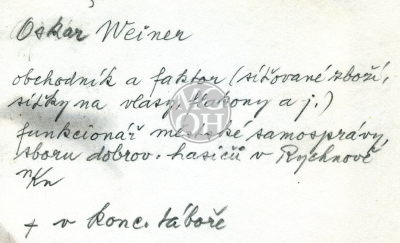 Oskar Weiner
obchodník a faktor (síťované zboží,
síťky na vlasy, flakony a j.)
funkcionář městské samosprávy,
sboru dobrov. hasičů v Rychnově
n/Kn
+ v konc. táboře